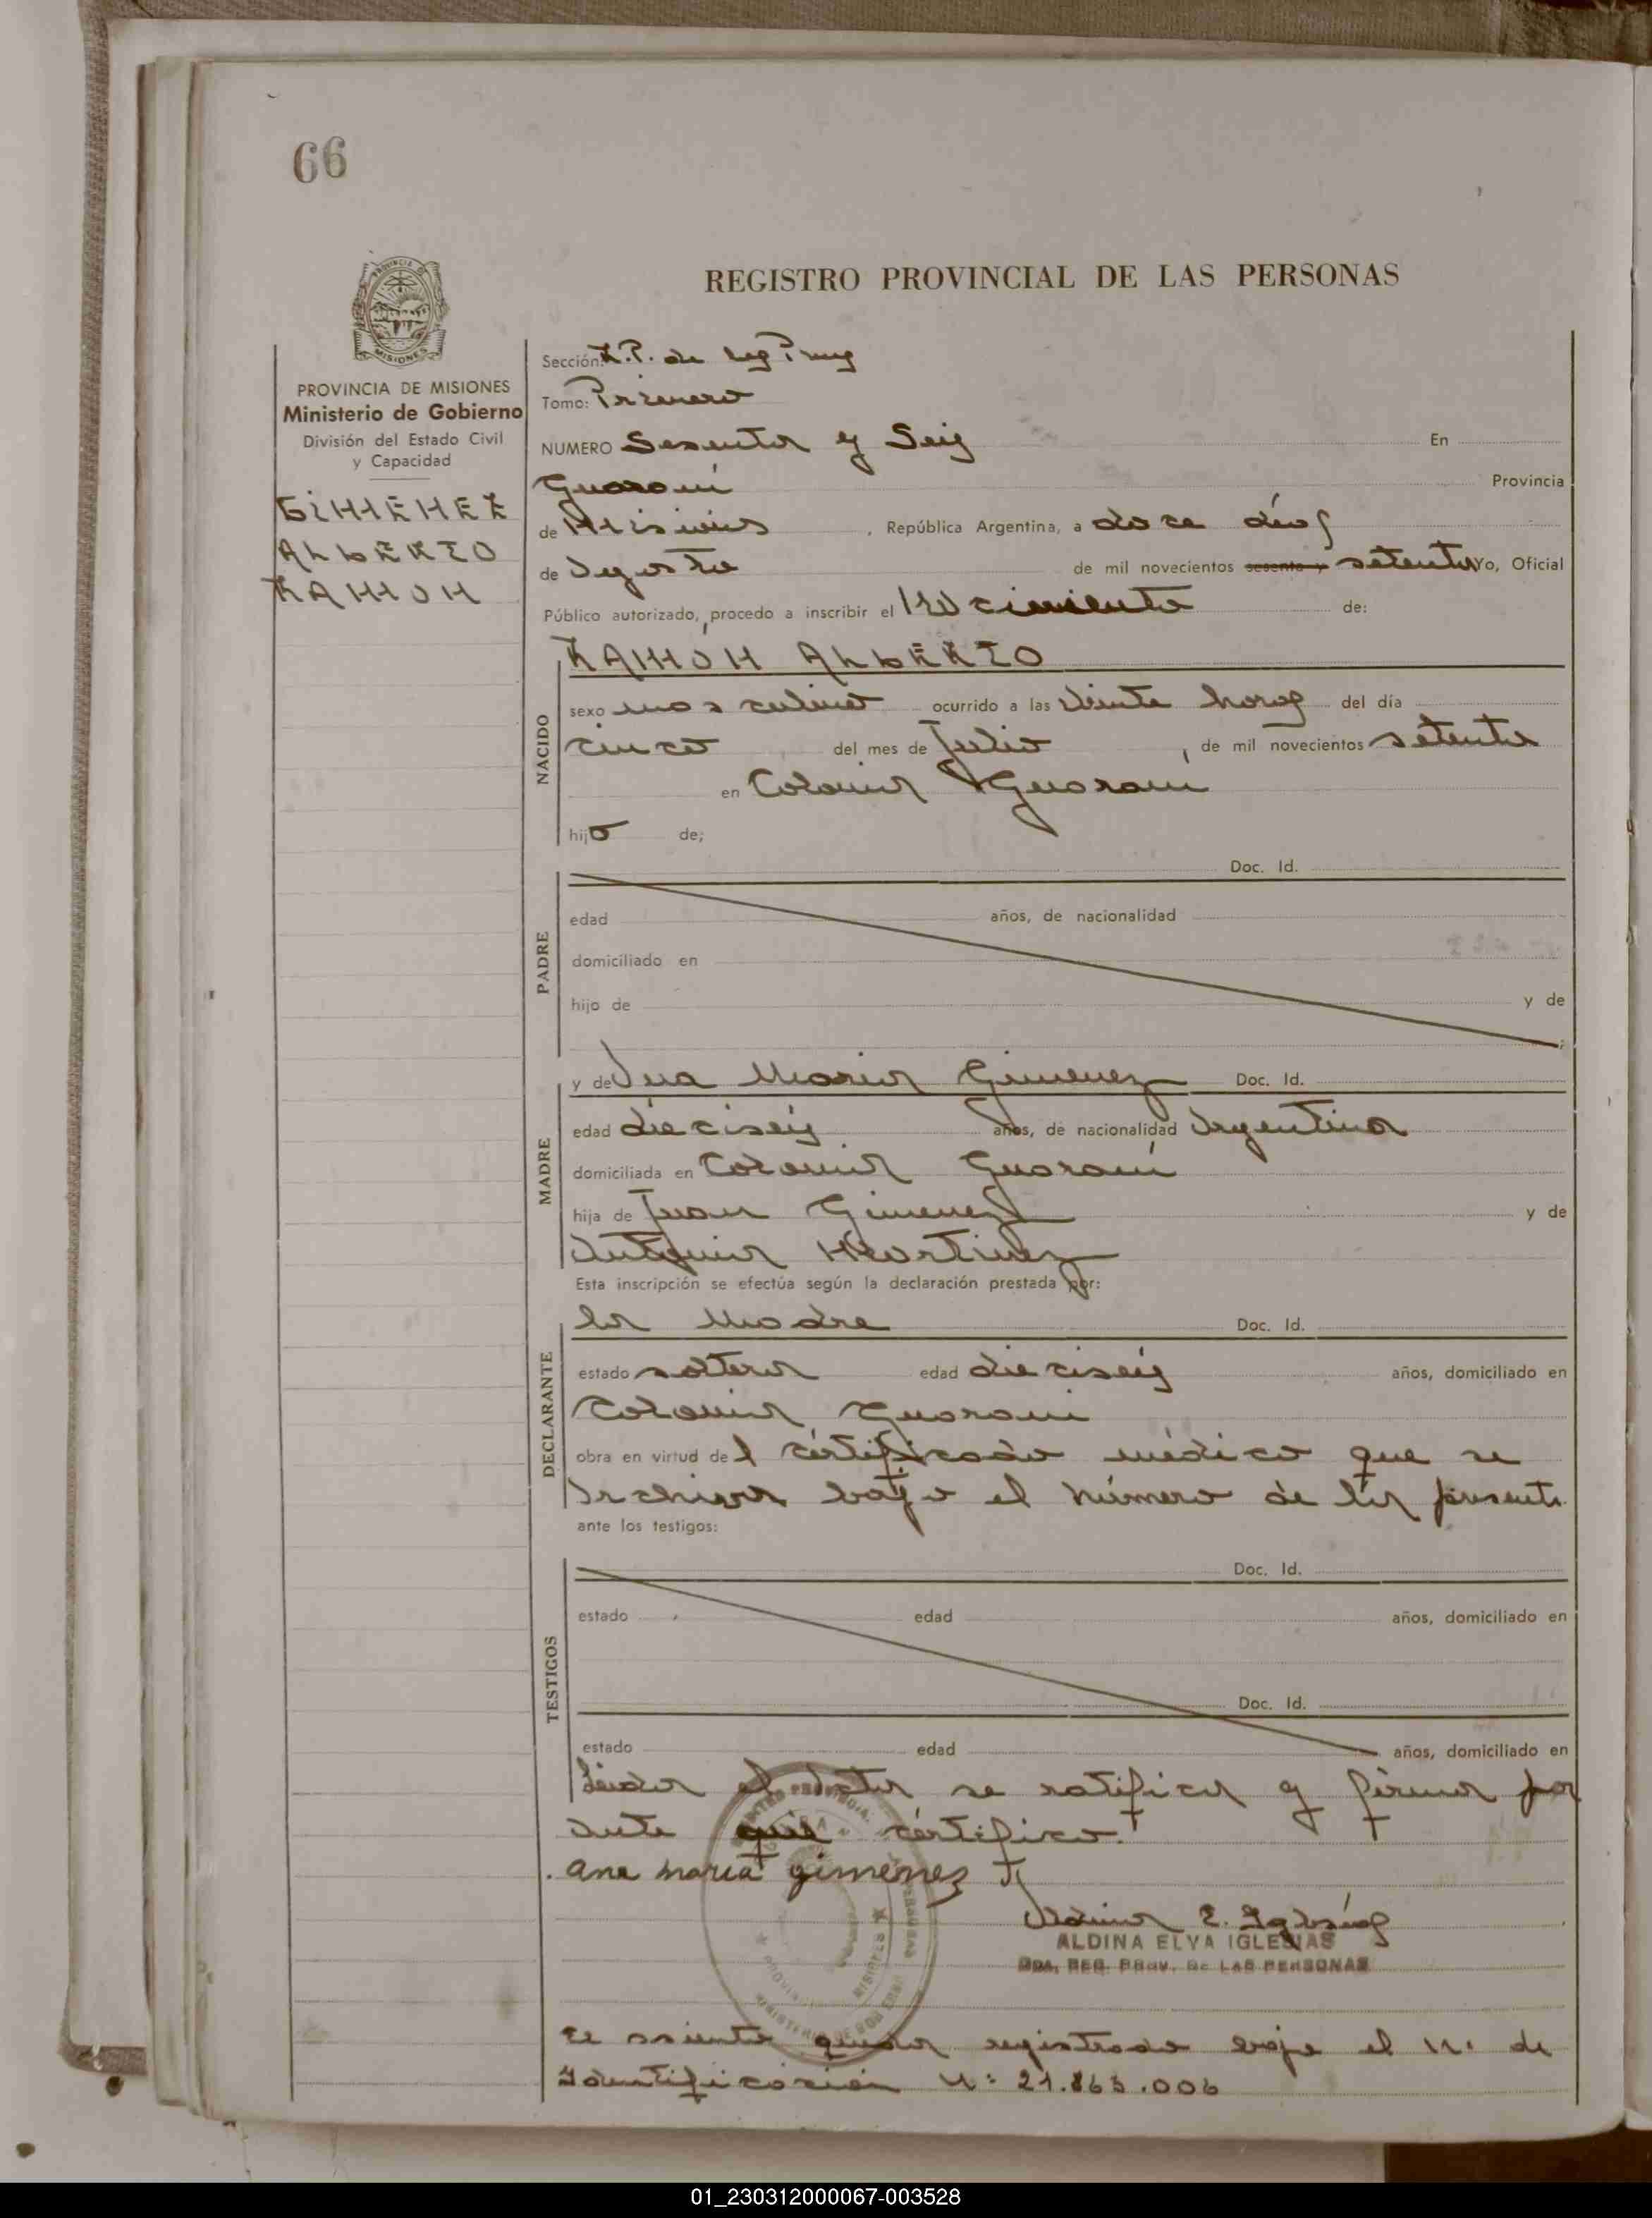 66
REGISTRO PROVINCIAL DE LAS PERSONAS
MISIONES
PROVINCIA DE MISIONES
Ministerio de Gobierno
División del Estado Civil
y Capacidad
GIMENEZ
ALBERTO
RAMON
Sección: R.P. de las
Tomo: Primero
NUMERO Sesenta y Seis En
Guaraní Provincia
de Misiones, República Argentina, a doce días
de Agosto de mil novecientos sesenta y setenta Yo, Oficial
Público autorizado, procedo a inscribir el Nacimiento de:
RAMÓN ALBERTO
NACIDO
sexo masculino ocurrido a las veinte horas del día
cinco del mes de Julio, de mil novecientos setenta
en Colonia Guaraní
hijo de;
PADRE
Doc. Id.
edad años, de nacionalidad
domiciliado en
hijo de y de
MADRE
y de Ana Maria Gimenez Doc. Id.
edad dieciseis años, de nacionalidad Argentina
domiciliada en Colonia Guaraní
hija de Juan Gimenez y de
Antonia Martinez
Esta inscripción se efectúa según la declaración prestada por:
DECLARANTE
la Madre Doc. Id.
estado soltera edad dieciseis años, domiciliado en
Colonia Guarani
obra en virtud del certificado médico que se
archiva bajo el número de la presente.
ante los testigos:
TESTIGOS
Doc. Id.
estado edad años, domiciliado en
Doc. Id.
estado edad años, domiciliado en
Leida el acta se ratifica y firma por
ante que certifico.
Ana maria gimenez
Aldina E. Iglesias
ALDINA ELVA IGLESIAS
REG. PROV. DE LAS PERSONAS
El asiento queda registrado bajo el N. de
Identificacion N: 21.863.006
01_230312000067-003528